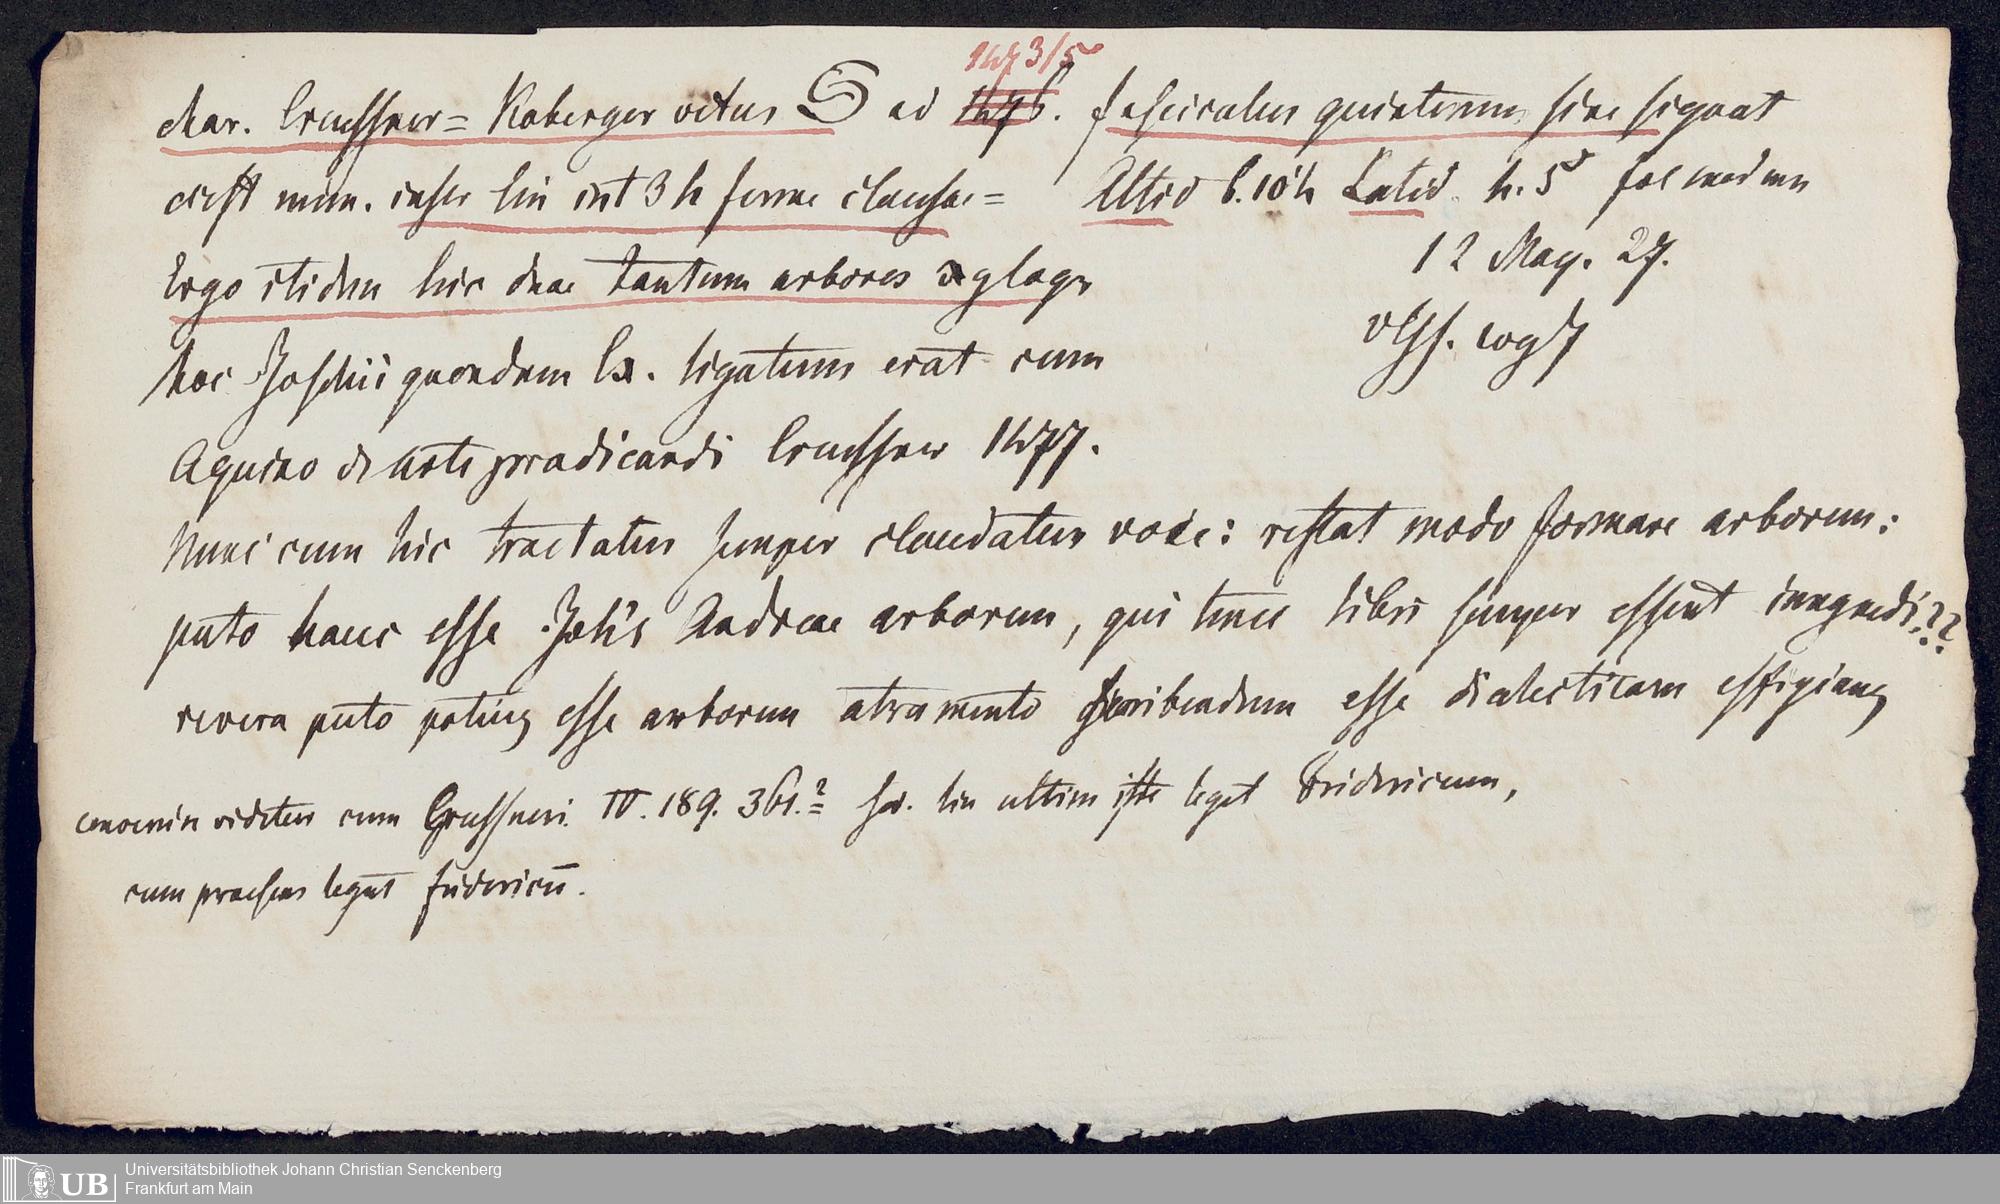 1473/5
char. Crussner = Koberger vetus S ad 1476. fasciculus quinternus sine signat
cust num. inser lin int 3 h forme clausae = Altid 6.10 h Latid h. 5 fol
Ergo itidem hic duae tantum arbores xylogr 12 May. 27.
hoc quondam Ex. ligatum erat cum
Aquino de arte praedicandi Crussner 1477.
Nunc cum hic tractatus semper claudatur voce: restat modo formare arborem:
puto hanc esse Joh's Andreae arborem, qui hunc libri semper essent
revera puto potius esse arborem atramento scribendum esse dialecticam
viditur cum Crussneri IV. 189. 361.? sed lin ultim iste legit Fridericum,
cum praesens legat fridericū.
Universitätsbibliothek Johann Christian Senckenberg
Frankfurt am Main
UB